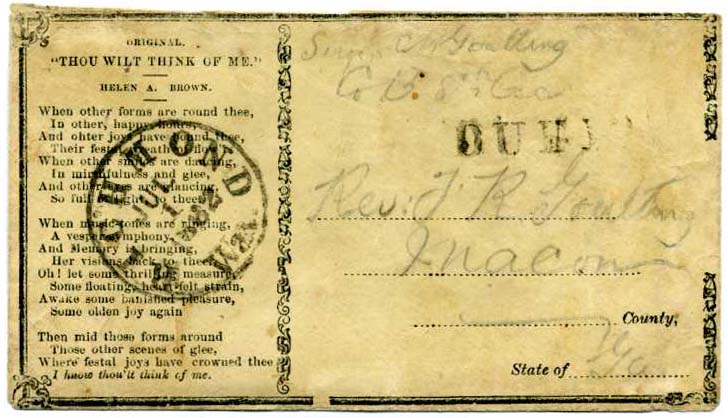 ORIGINAL.
"THOU WILT THINK OF ME."
HELEN A. BROWN.
When other forms are round thee,
In other, happy hours,
And ohter joys have bound thee,
Their festal wreath of flow
When other smiles are dancing,
In mirthfulness and glee,
And other eyes are glancing,
So full of light to thee
When music tones are ringing,
A vesper symphony,
And Memory is bringing,
Her visions back to thee
Oh! let some thrilling measure,
Some floating, heart-felt strain,
Awake some banished pleasure,
Some olden joy again
Then mid those forms around
Those other scenes of glee,
Where festal joys have crowned thee
I know thou'lt think of me.
MOND
JUL
1
1862
VA.
DUE
Co B 8th Geo
Rev: J R Goulding
Macon
County,
State of